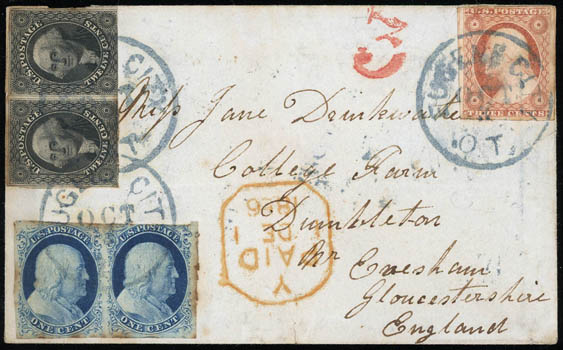 U.S.POSTAGE
TWELVE CENTS
U.S.POSTAGE
TWELVE CENTS
CITY
U.S.POSTAGE
THREE CENTS
EUGENE CI
O.T.
Miss Jane Drinkwater
College Farm
Dumbleton
Nr Evesham
Gloucestershire
England
CITY
OCT
U.S.POSTAGE
ONE CENT
U.S.POSTAGE
ONE CENT
AID
DE